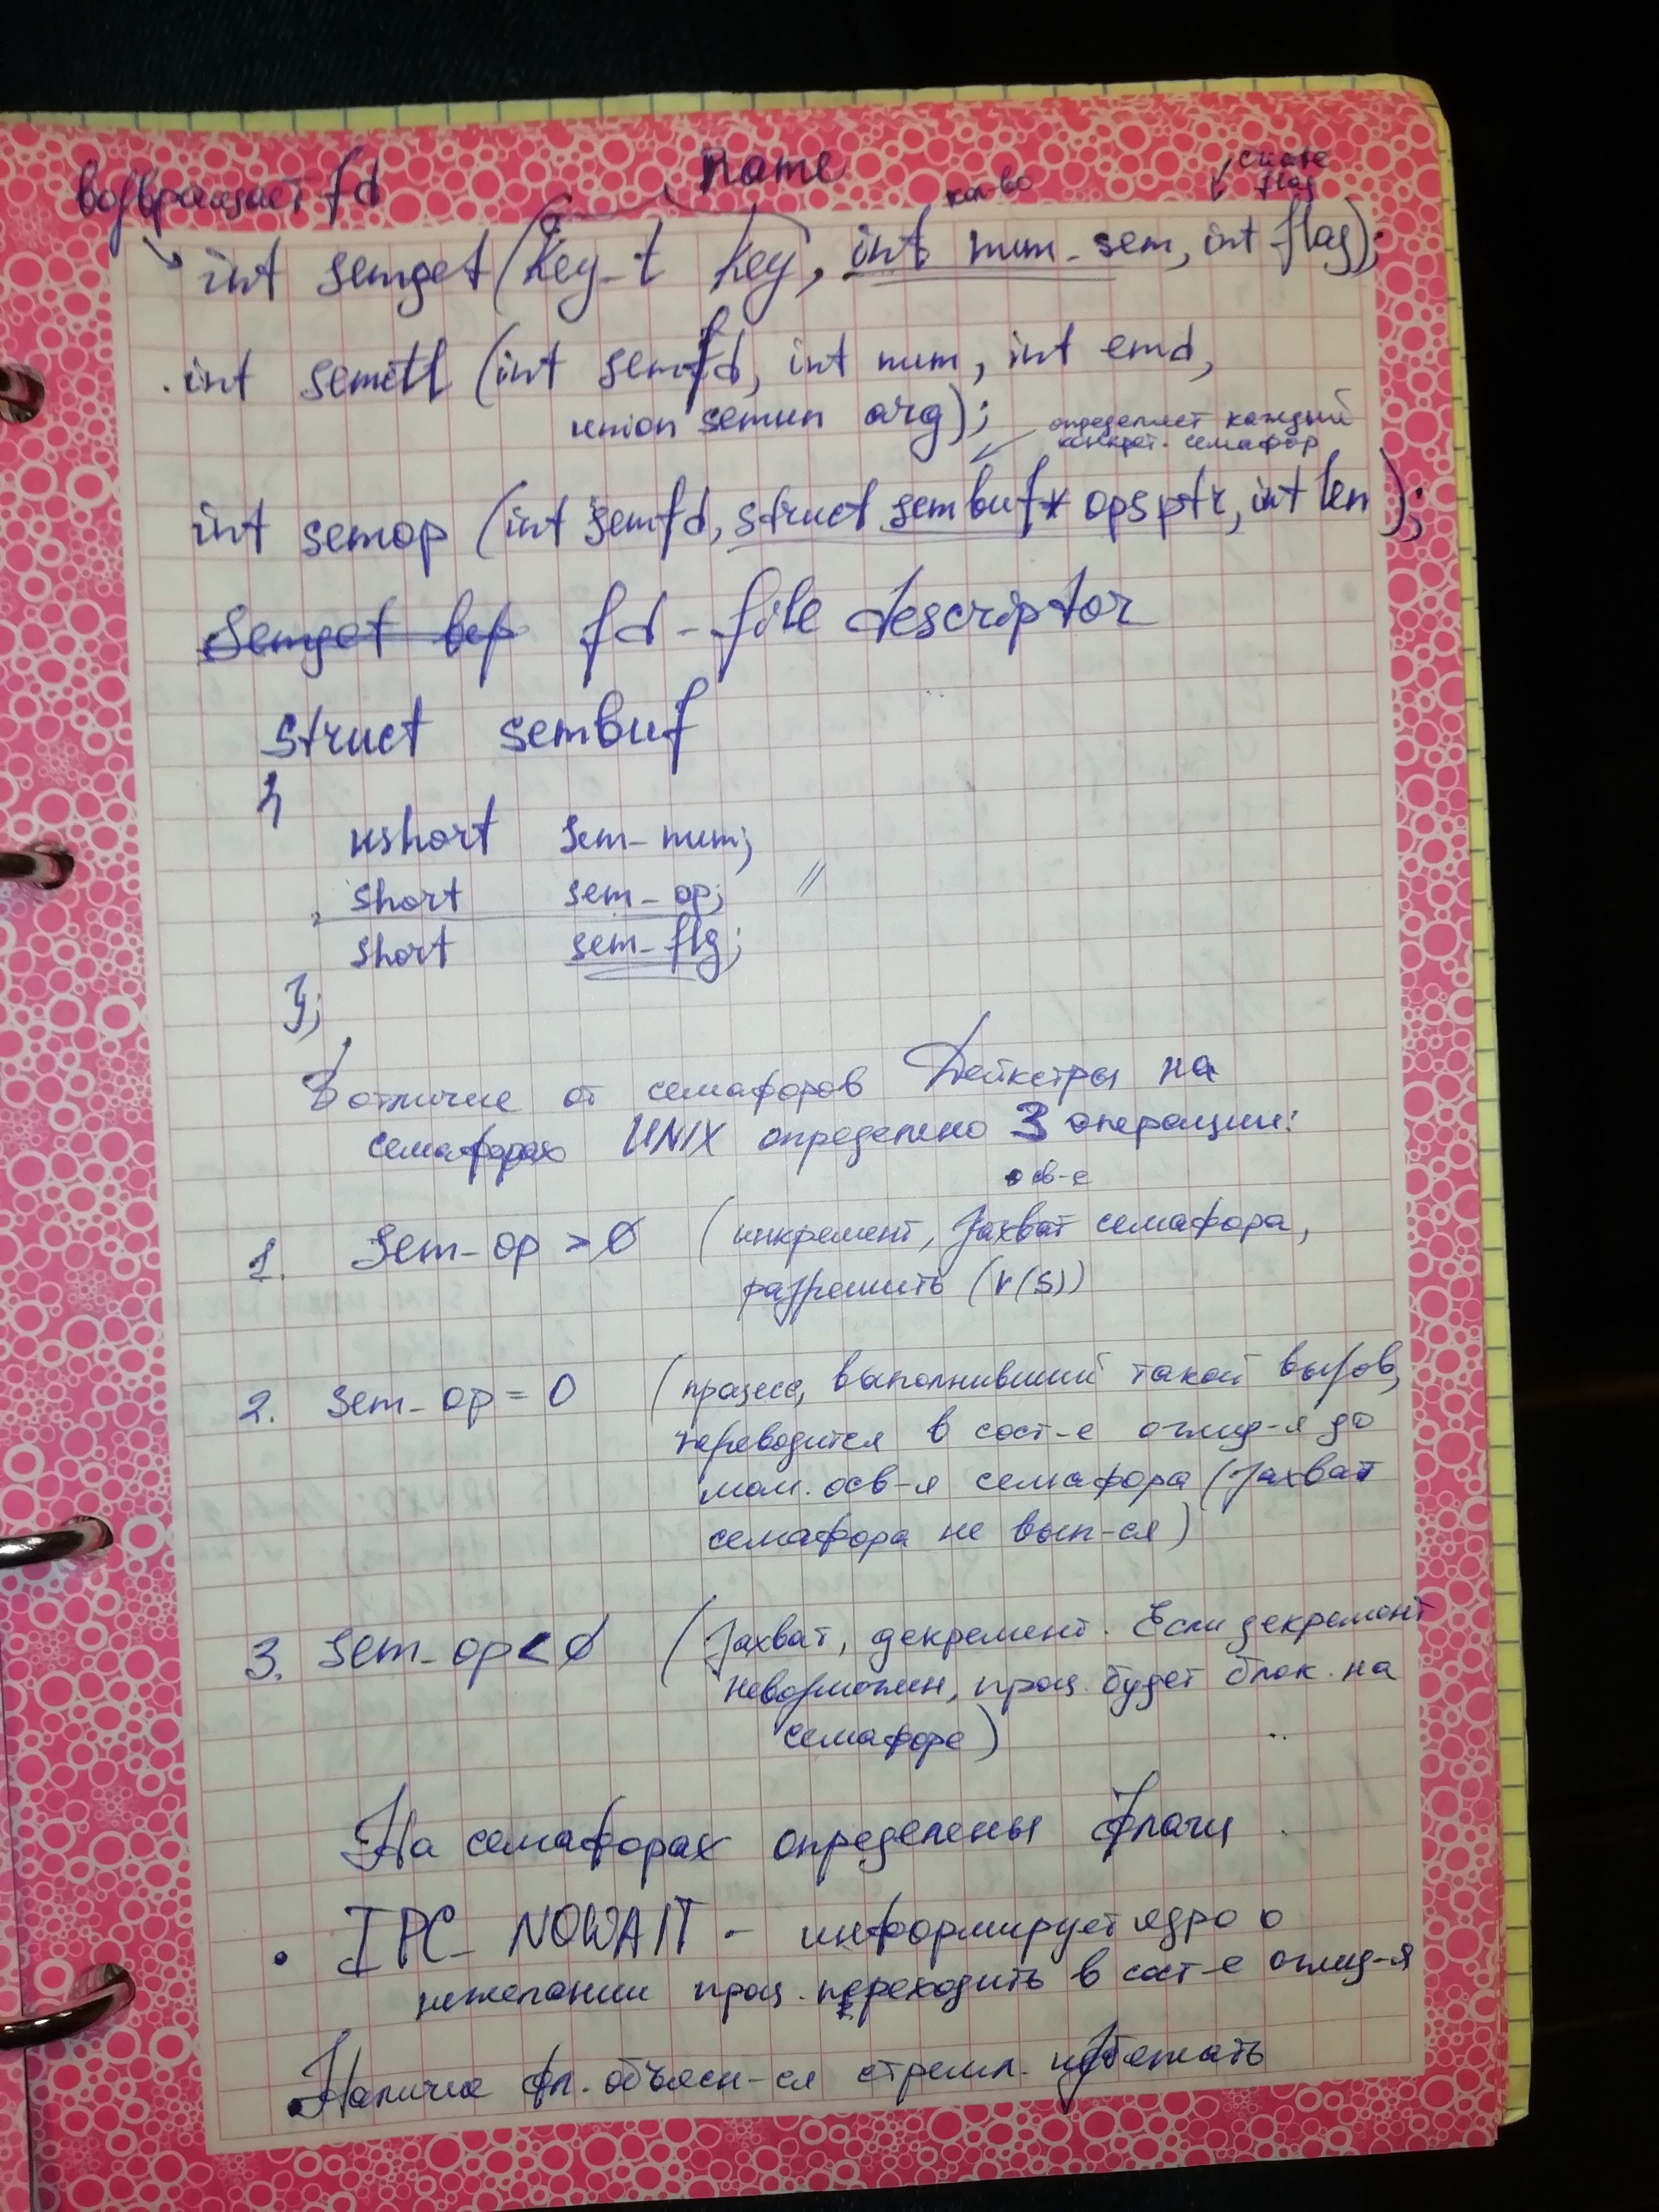 возвращает fd
name
кол-во
flag
int semget(key_t key, int num_sem, int flag);
int semctl (int semfd, int num, int cmd,
union semun arg);
определяет каждый
конкрет. семафор
int semop (int semfd, struct sembuf* opsptr, int len);
Semget вер fd - file descriptor
struct sembuf
{
ushort sem_num;
short sem_op; //
short sem_flg;
};
В отличие от семафоров Дейкстры на
семафорах UNIX определено 3 операции:
осв-е
1. sem_op > 0 (инкремент, захват семафора,
разрешить (V(S))
2. sem_op = 0 (процесс, выполнивший такой вызов,
переводится в сост-е ожид-я до
мом. осв-я семафора (захват
семафора не вып-ся)
3. sem_op < 0 (захват, декремент. Если декремент
невозможен, проц. будет блок. на
семафоре)
На семафорах определены флаги
• IPC_NOWAIT - информирует ядро о
нежелании проц. переходить в сост-е ожид-я
Наличие фл. объясн-ся стремл. избежать